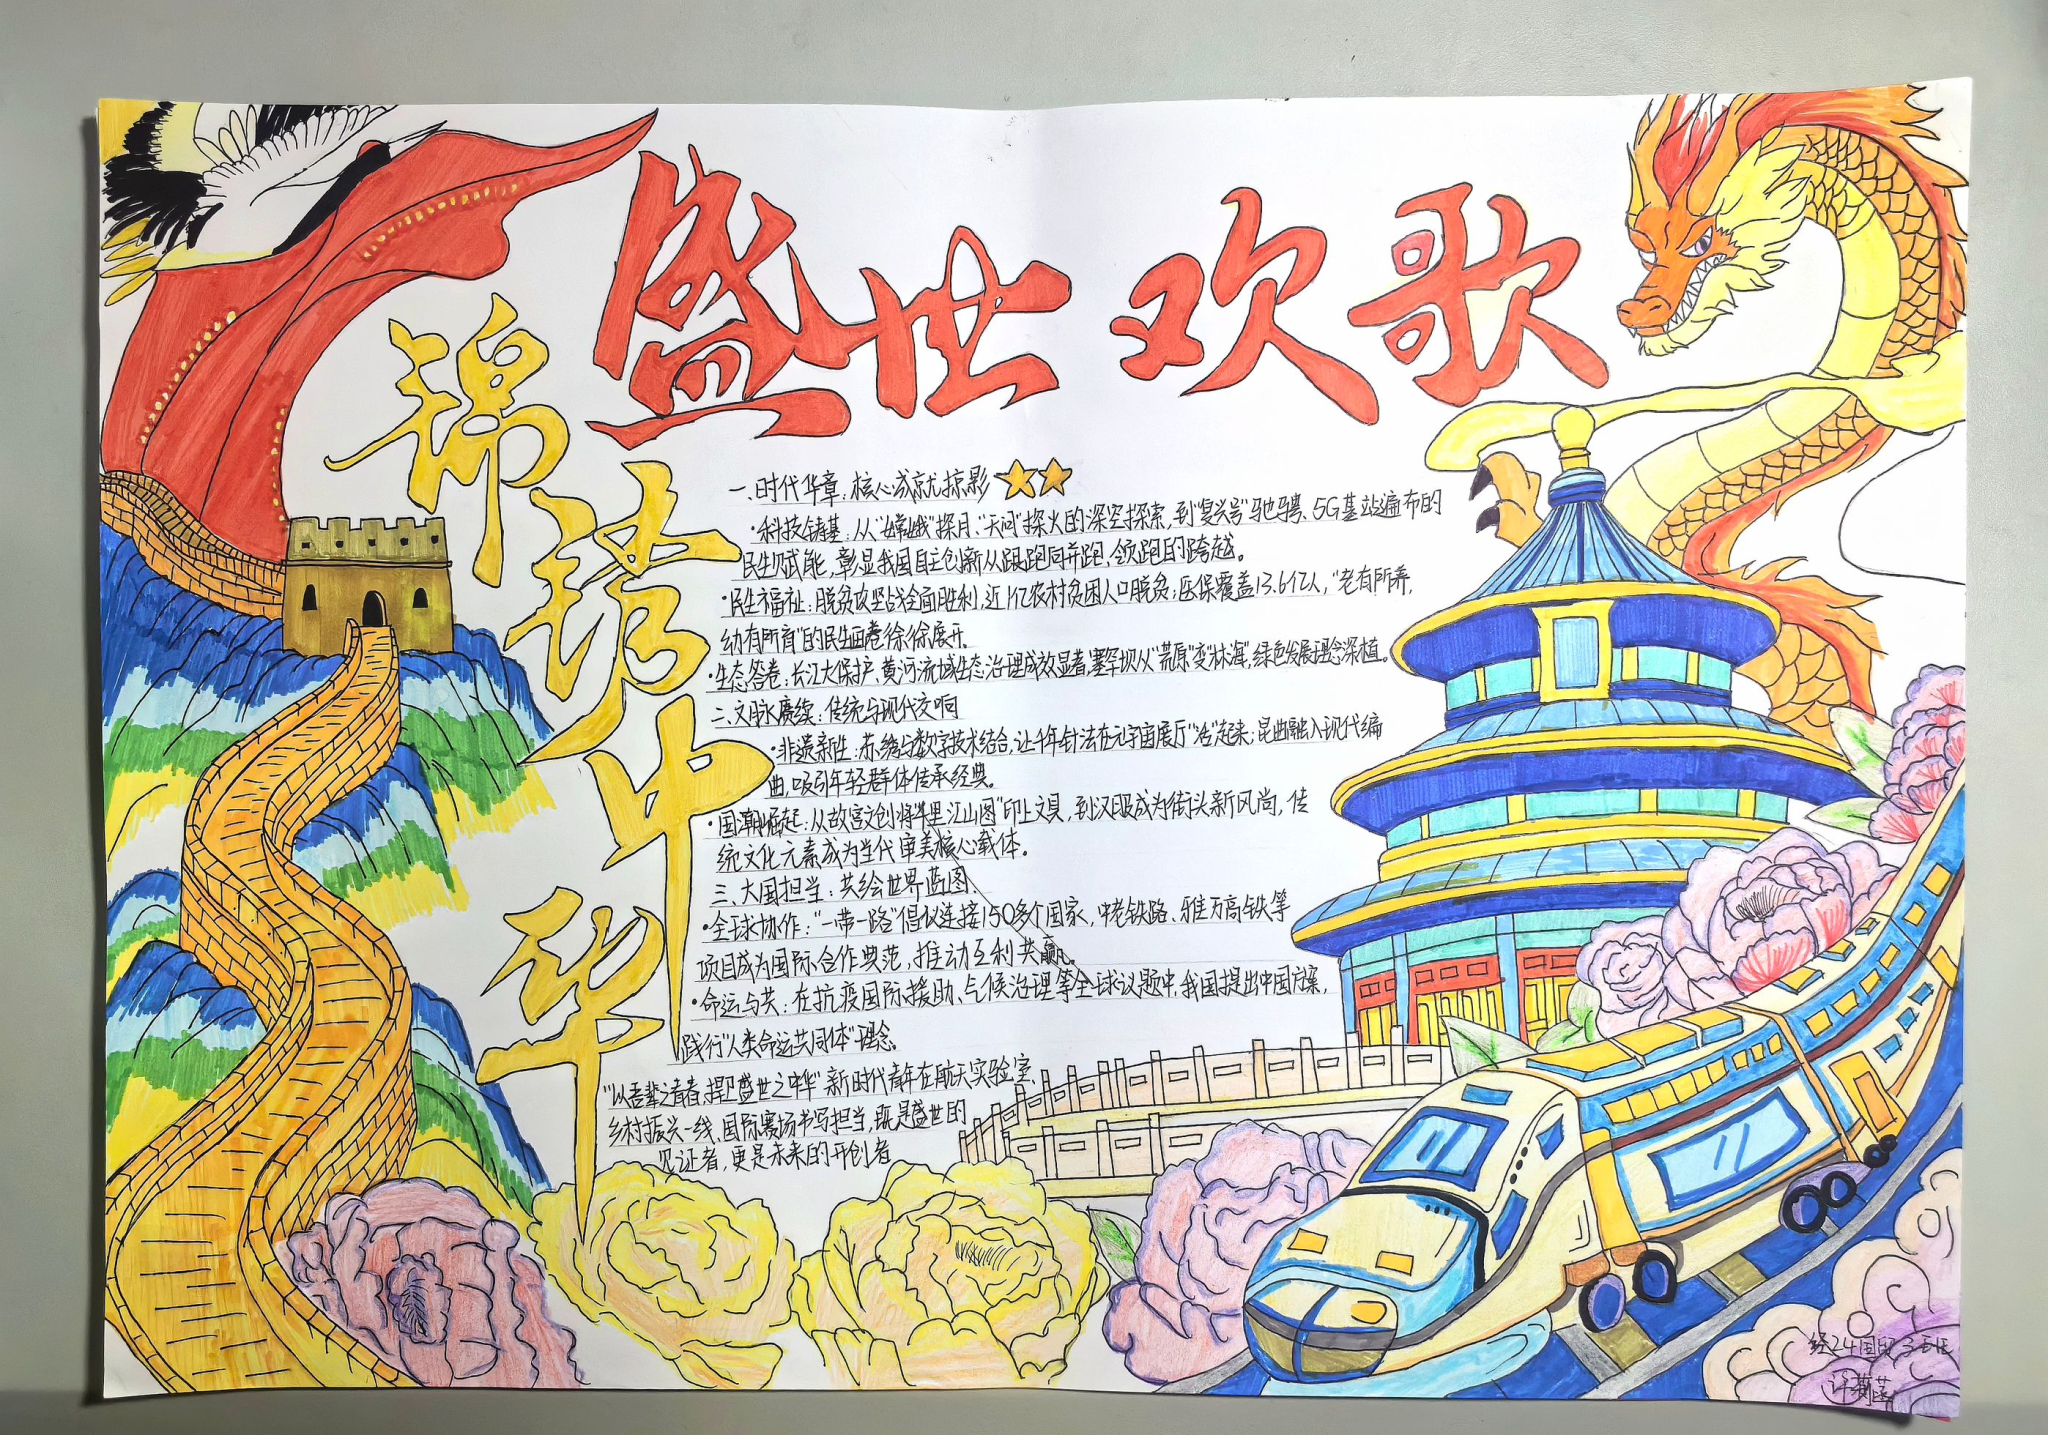 盛世欢歌
锦绣中华
一、时代华章：核心成就掠影
·科技铸基：从“嫦娥”探月、“天问”探火的深空探索，到“复兴号”驰骋、5G基站遍布的
民生赋能，彰显我国自主创新从跟跑向并跑、领跑的跨越。
·民生福祉：脱贫攻坚战全面胜利，近1亿农村贫困人口脱贫；医保覆盖13.6亿人，“老有所养，
幼有所育”的民生画卷徐徐展开。
·生态答卷：长江大保护、黄河流域生态治理成效显著，塞罕坝从“荒原”变“林海”，绿色发展理念深植。
二、文脉赓续：传统与现代交响
·非遗新生：苏绣与数字技术结合，让千年针法在元宇宙展厅“活”起来；昆曲融入现代编
曲，吸引年轻群体传承经典。
·国潮崛起：从故宫文创将“千里江山图”印上文具，到汉服成为街头新风尚，传
统文化元素成为当代审美核心载体。
三、大国担当：共绘世界蓝图
·全球协作：“一带一路”倡议连接150多个国家，中老铁路、雅万高铁等
项目成为国际合作典范，推动互利共赢。
·命运与共：在抗疫国际援助、气候治理等全球议题中，我国提出中国方案，
践行“人类命运共同体”理念。
“以吾辈之青春，捍卫盛世之中华”新时代青年在航天实验室、
乡村振兴一线、国际赛场书写担当，既是盛世的
见证者，更是未来的开创者
经24国贸3班
许